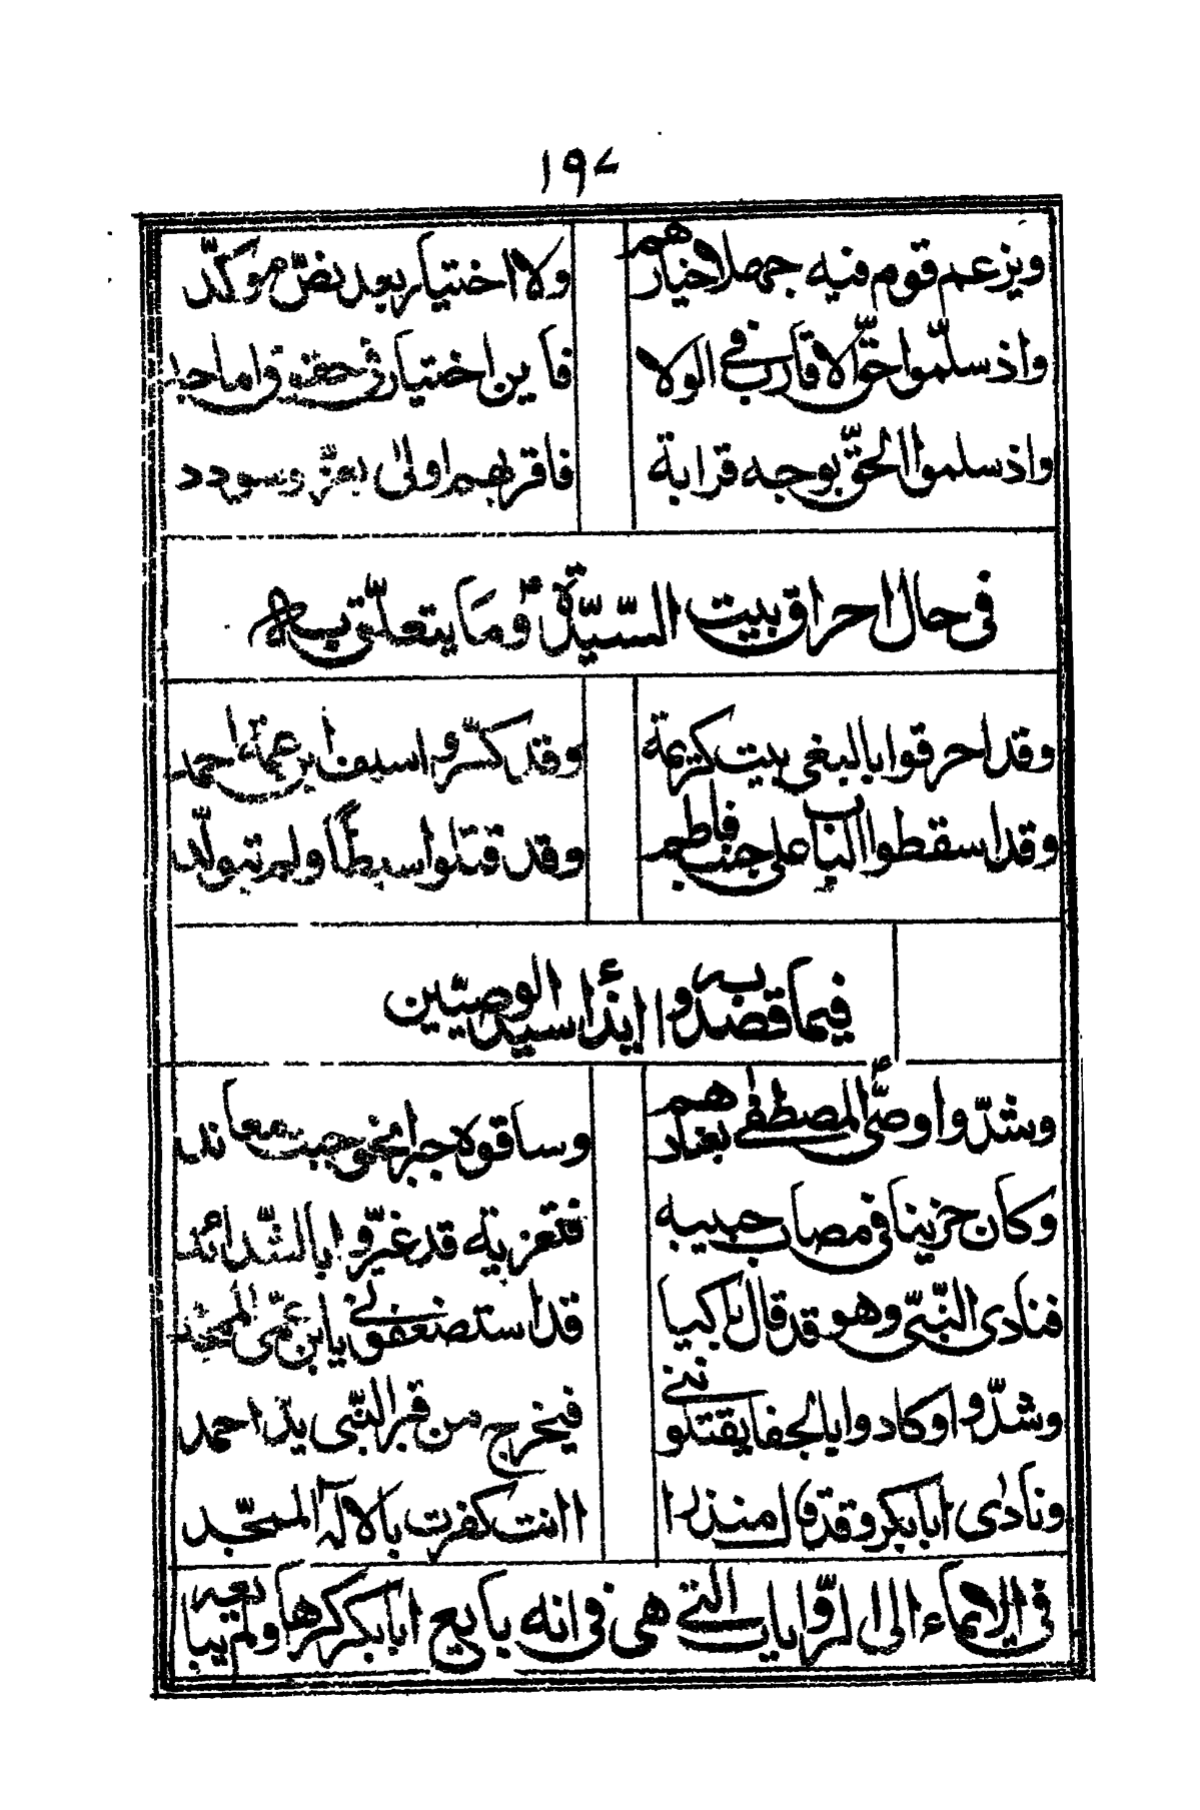 ١٩٧
ويزعم قوم فيه جهلا اختيارهم ولا اختيار بعد نصّ موكّد
واذ سلموا حقّا لاقارب فى الولا فاين اختيار فى حقه
واذ سلموا الحقّ بوجه قرابة فاقربهم اولىٰ بعزّ وسودد
فى حال احراق بيت السيّدة ومايتعلّق به
وقد احرقوا بالبغى بيت كريمة وقد كسّروا سيف ابن عمّه احمد
وقد اسقطوا الباب على جنب فاطم وقد قتلوا سبطًا ولم تبولّد
فيما قصدوا به ايذاء سيد الوصيّين
وشدّوا وصّى المصطفى بعنادهم وساقوه جبرا نحو جبت معاند
وكان حزينا فى مصاب حبيبه فتعزية قد غيّروا بالشّدائد
فنادى النّبّى وهو قد قال باكيا قد استضعفونى يابن عمّى الممجّد
وشدّوا وكادوا بالجفا يقتلوننى فيخرج من قبر النّبى يدّ احمد
ونادىٰ ابابكر وقد قال منذرا اانت كفرت بالالٰه الممجّد
فى الايماء الى الرّوايات التى هى فى انه بايع ابابكر كرها ولم يبايعه